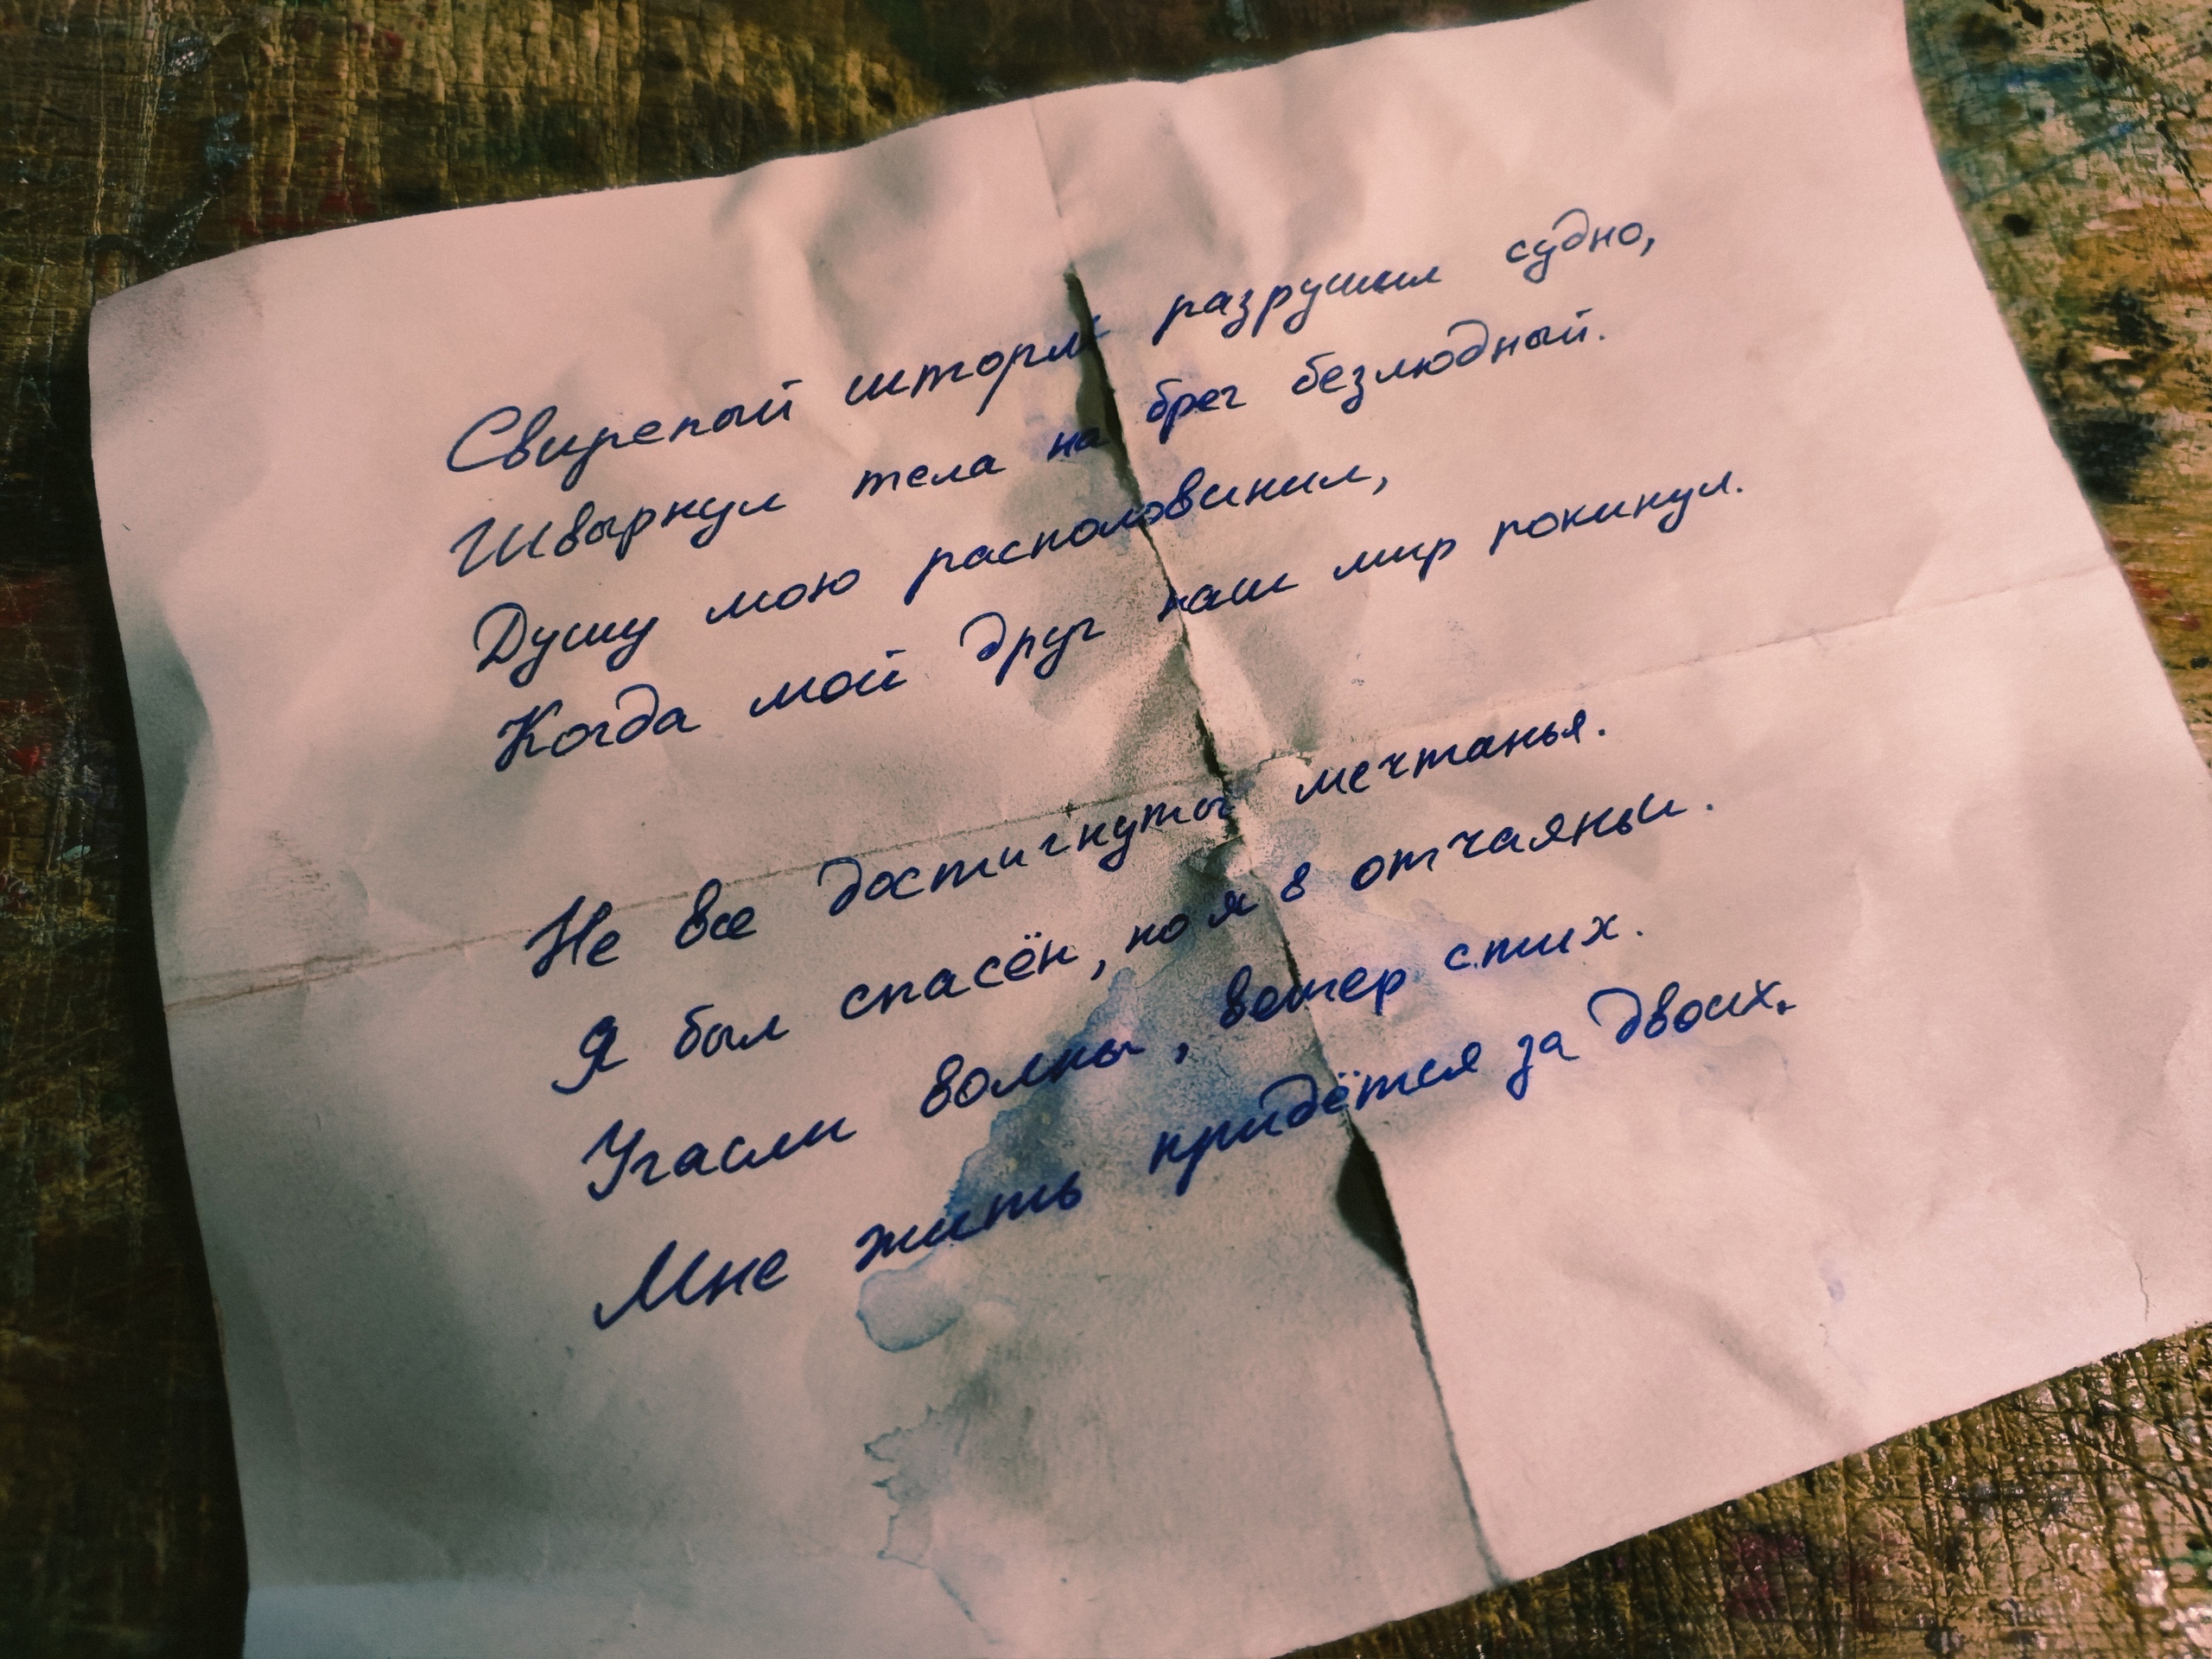 Свирепый шторм разрушил судно,
Швырнул тела на брег безлюдный.
Душу мою располовинил,
Когда мой друг наш мир покинул.
Не все достигнуты мечтанья.
Я был спасён, но я в отчаяньи.
Угасли волны, ветер стих.
Мне жить придётся за двоих.